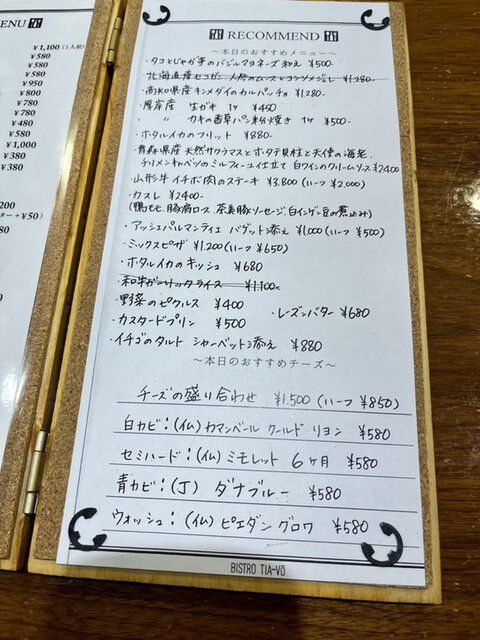 ENU
¥1,100(1人前)
¥580
¥580
¥580
¥950
¥800
¥780
¥780
¥480
¥580
¥1,000
¥380
¥380
ター+¥50)
RECOMMEND
～本日のおすすめメニュー～
・タコとじゃが芋のバジルマヨネーズ和え ¥500
・高知県産 キンメダイのカルパッチョ ¥1,280-
・厚岸産 生ガキ 1ヶ ¥450
〃 カキの香草パン粉焼き 1ヶ ¥500-
・ホタルイカのフリット ¥880-
・青森県産 天然サクラマスとホタテ貝柱と天使の海老、
チリメンキャベツのミルフィーユ仕立て 白ワインのクリームソース ¥2400
・山形牛 イチボ肉のステーキ ¥3,800 (ハーフ ¥2,000)
・カスレ ¥2400-
(鴨モモ、豚肩ロース、茶美豚ソーセージ、白インゲン豆の煮込み)
・アッシェパルマンティエ バゲット添え ¥1,000 (ハーフ ¥500)
・ミックスピザ ¥1,200 (ハーフ ¥650)
・ホタルイカのキッシュ ¥680
・和牛ガーリックライス ¥1,100-
・野菜のピクルス ¥400
・レーズンバター ¥680
・カスタードプリン ¥500
・イチゴのタルト シャーベット添え ¥880
～本日のおすすめチーズ～
チーズの盛り合わせ ¥1,500 (ハーフ ¥850)
白カビ:(仏) カマンベール クールド リヨン ¥580
セミハード:(仏) ミモレット 6ヶ月 ¥580
青カビ:(丁) ダナブルー ¥580
ウォッシュ:(仏) ピエダングロワ ¥580
BISTRO TIA-VŌ